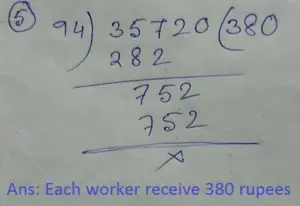 ⑤ 94) 35720 (380
282
752
752
×
Ans: Each worker receive 380 rupees